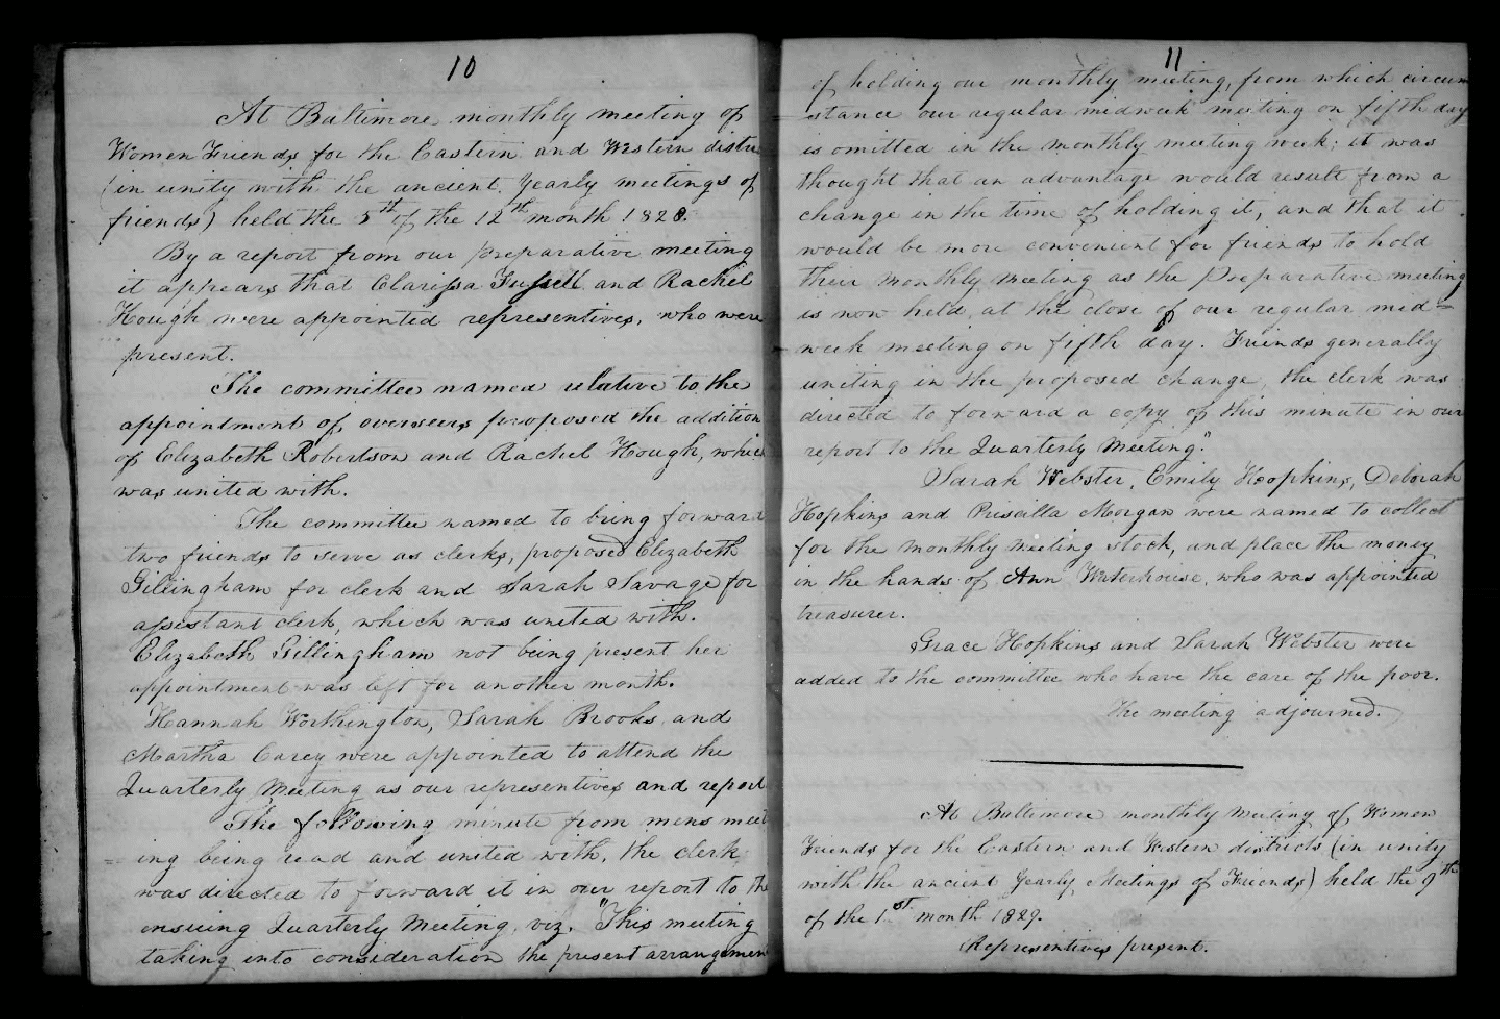 10
At Baltimore monthly meeting of
Women Friends for the Eastern and Western distri
(in unity with the ancient Yearly meetings of
friends) held the 5th of the 12th month 1828.
By a report from our preparative meeting
it appears that Clarissa Fussell and Rachel
Hough were appointed representives, who were
present.
The committee named relative to the
appointment of overseers proposed the addition
of Elizabeth Robertson and Rachel Hough, which
was united with.
The committee named to bring forward
two friends to serve as clerks, proposed Elizabeth
Gillingham for clerk and Sarah Savage for
assistant clerk, which was united with.
Elizabeth Gillingham not being present her
appointment was left for another month.
Hannah Worthington, Sarah Brooks and
Martha Carey were appointed to attend the
Quarterly Meeting as our representives and report
The following minute from mens meet
ing being read and united with, the clerk
was directed to forward it in our report to the
ensuing Quarterly Meeting, viz. "This meeting
taking into consideration the present arrangemen
11
of holding our monthly meeting, from which circum
=stance our regular midweek meeting on fifth day
is omitted in the monthly meeting week; it was
thought that an advantage would result from a
change in the time of holding it, and that it
would be more convenient for friends to hold
their monthly meeting as the Preparative meeting
is now held, at the close of our regular mid=
=week meeting on fifth day. Friends generally
uniting in the proposed change, the clerk was
directed to forward a copy of this minute in our
report to the Quarterly Meeting."
Sarah Webster, Emily Hopkins, Deborah
Hopkins and Priscilla Morgan were named to collect
for the monthly meeting stock, and place the money
in the hands of Ann Waterhouse, who was appointed
treasurer.
Grace Hopkins and Sarah Webster were
added to the committee who have the care of the poor.
The meeting adjourned.
At Baltimore monthly meeting of Women
Friends for the Eastern and Western districts (in unity
with the ancient Yearly Meetings of Friends) held the 9th
of the 1st month 1829.
Representives present.